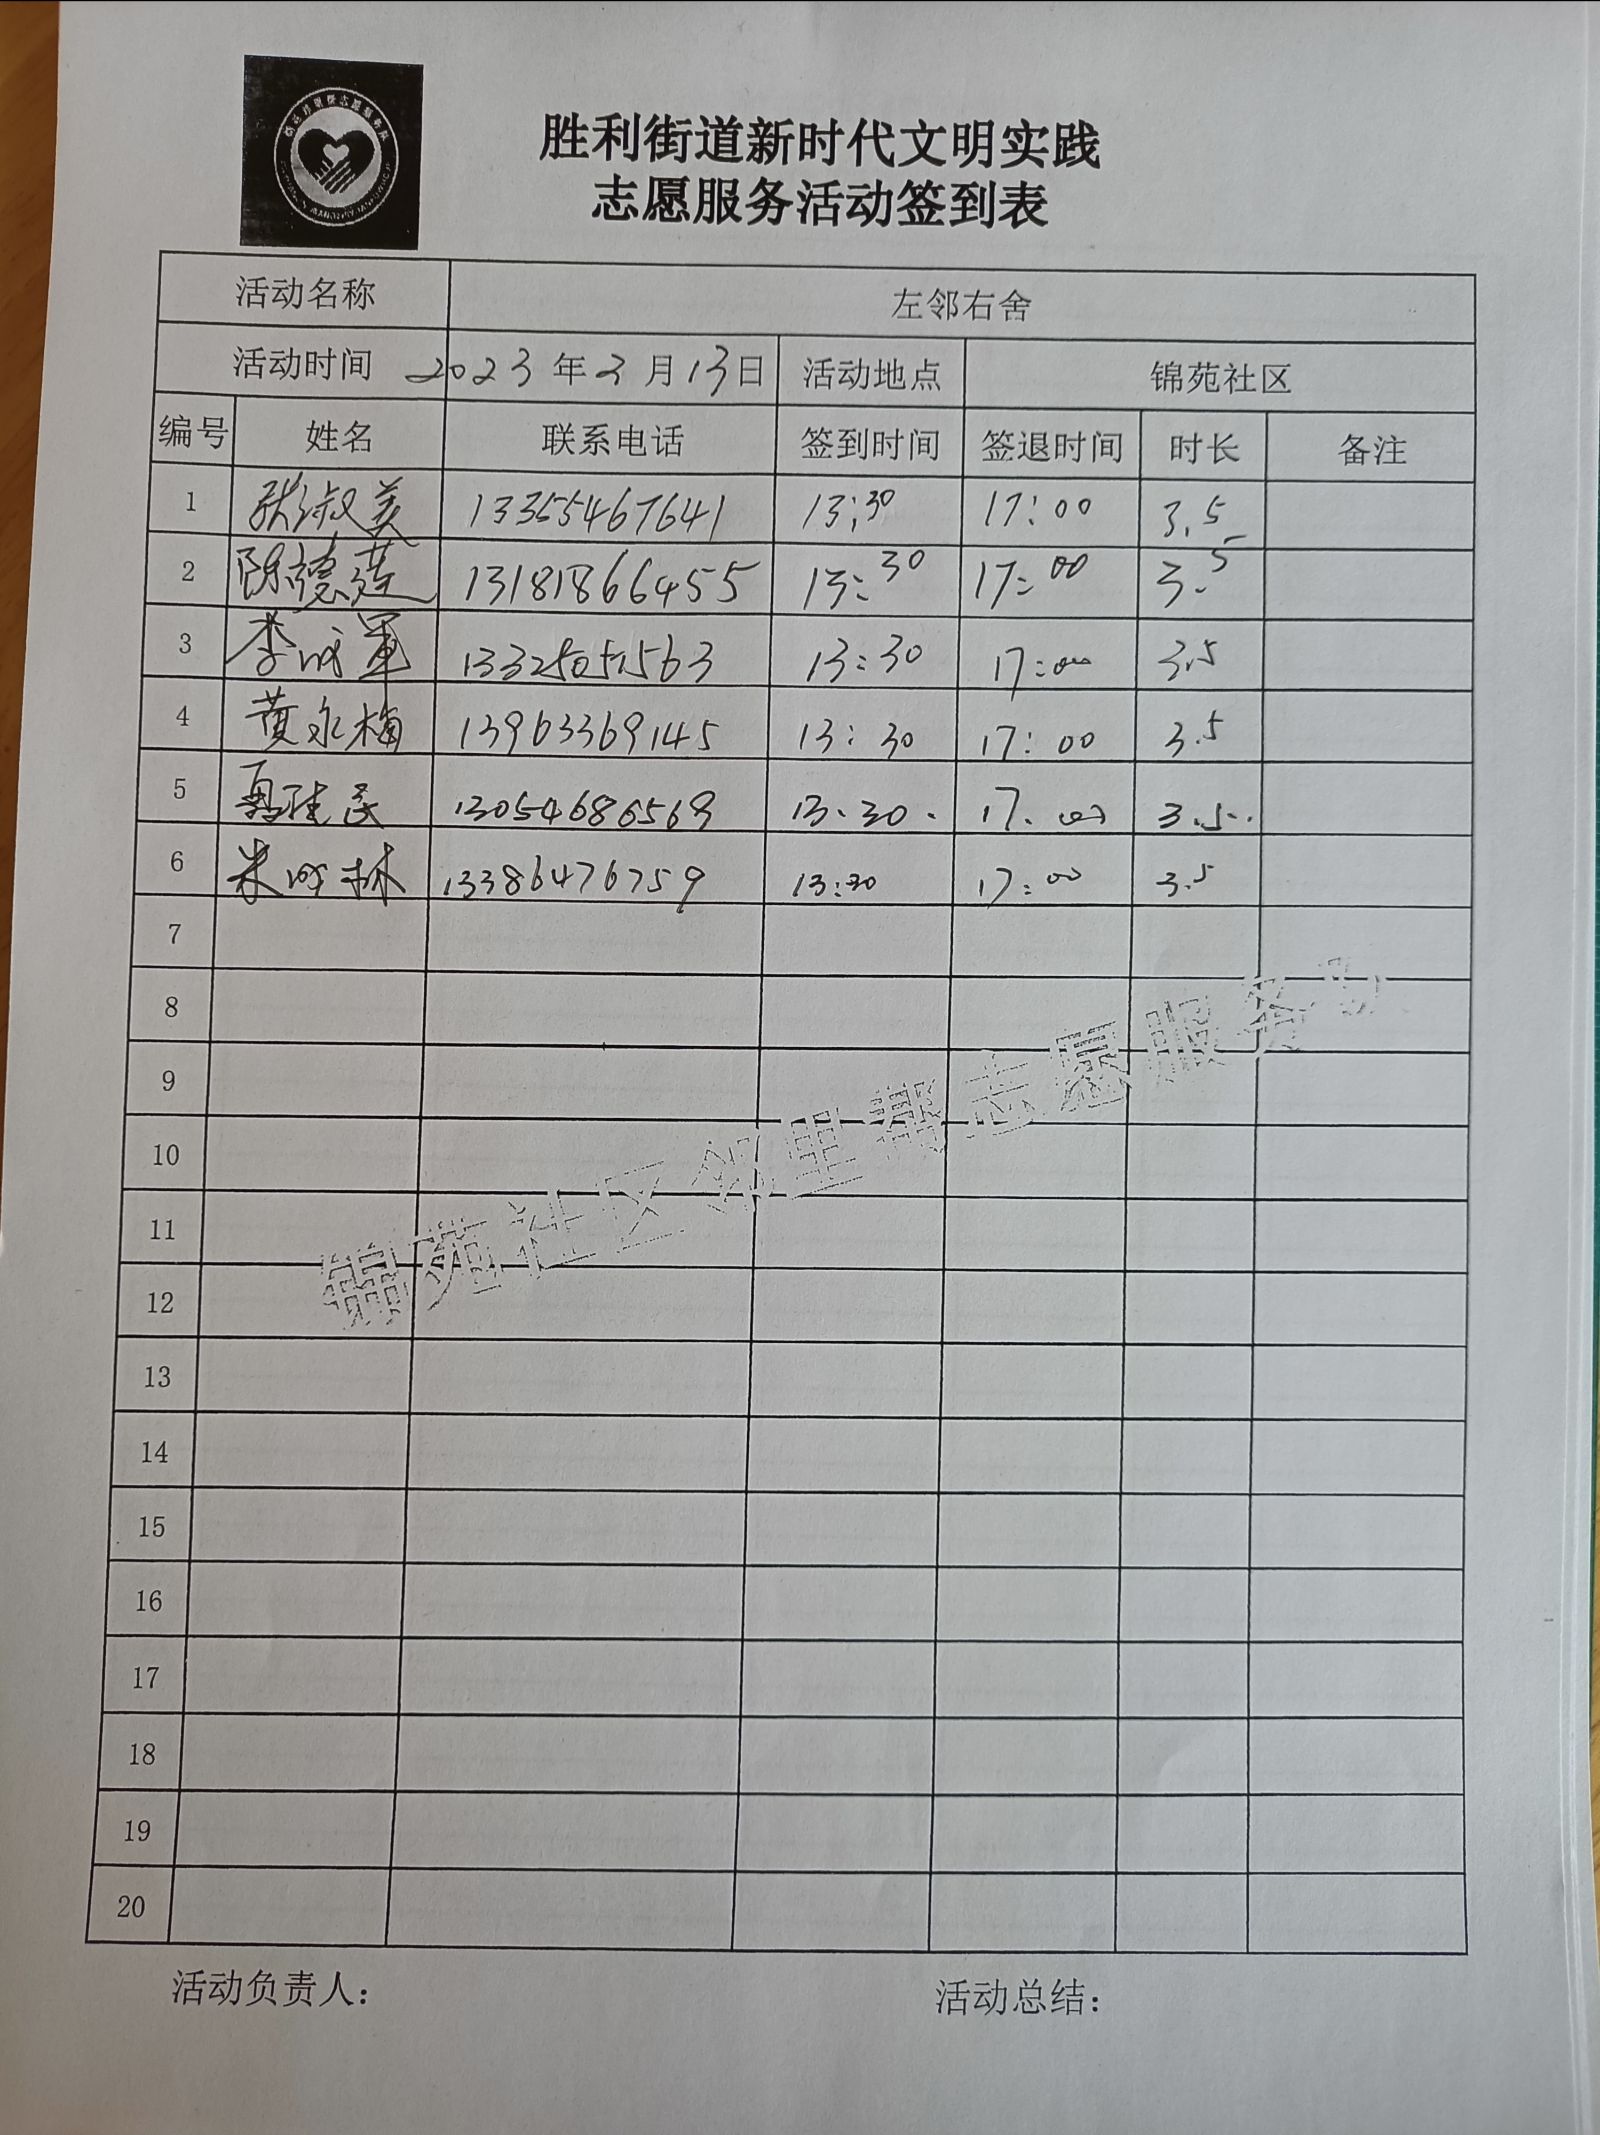 胜利街道新时代文明实践
志愿服务活动签到表
活动名称 左邻右舍
活动时间 2023年2月13日 活动地点 锦苑社区
编号 姓名 联系电话 签到时间 签退时间 时长 备注
1 张淑美 13355467641 13:30 17:00 3.5
2 陈德莲 13181866455 13:30 17:00 3.5
3 李成军 13:30 17:00 3.5
4 黄永梅 13963369145 13:30 17:00 3.5
5 13054686569 13:30 17:00 3.5
6 米成林 13386476759 13:30 17:00 3.5
7
8
9
10
11
12
13
14
15
16
17
18
19
20
锦苑社区邻里帮志愿服务队
活动负责人： 活动总结：